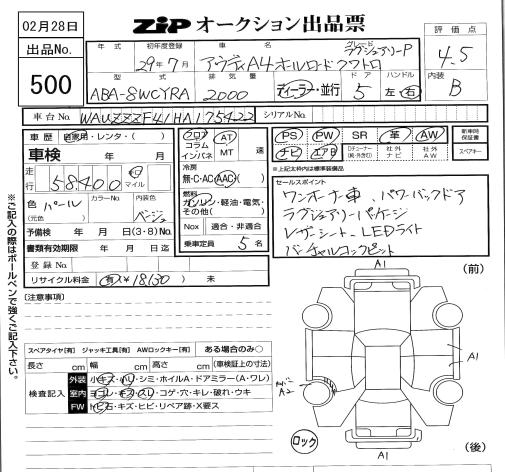 02月28日
出品No.
500
ZIP オークション出品票
年式
初年度登録
29年7月
車名
アウディA4オールロードクワトロ
グレード
ラグジュアリーP
評価点
4.5
型式
ABA-8WCYRA
排気量
2000
ディーラー・並行
ドア
5
ハンドル
左・右
内装
B
車台No.
WAUZZZF41HA175422
シリアルNo.
車歴
自家用・レンタ・( )
車検 年 月
走行
58400
km
マイル
色
パール
(元色)
カラーNo.
内装色
ベージュ
予備検 年 月 日(3・8)No.
書類有効期限 年 月 日迄
登録No.
リサイクル料金
有 ¥18130 ) 未
フロア
コラム
インパネ
AT
MT
速
冷房
無・C・AC・AAC( )
燃料
ガソリン・軽油・電気・
その他( )
Nox
適合・非適合
乗車定員 5 名
PS
PW
SR
革
AW
ナビ
エアB
Dチューナー
(純・外含む)
社外
ナビ
社外
AW
※上記太枠内は標準装備品
新車時
保証書
スペアキー
セールスポイント
ワンオーナー車、パワーバックドア
ラグジュアリーパッケージ
レザーシート LEDライト
バーチャルコックピット
[注意事項]
スペアタイヤ[有] ジャッキ工具[有] AWロックキー[有]
ある場合のみ○
長さ cm 幅 cm 高さ cm (車検証上の寸法)
検査記入
外装
小キズ・小凹・シミ・ホイルA・ドアミラー(A・ワレ)
室内
ヨゴレ・キズ・スレ・コゲ・穴・キレ・破れ・ウキ
FW
トビ石・キズ・ヒビ・リペア跡・X要ス
※ご記入の際はボールペンで強くご記入下さい。
A1
(前)
A1
A2
ロック
A1
(後)